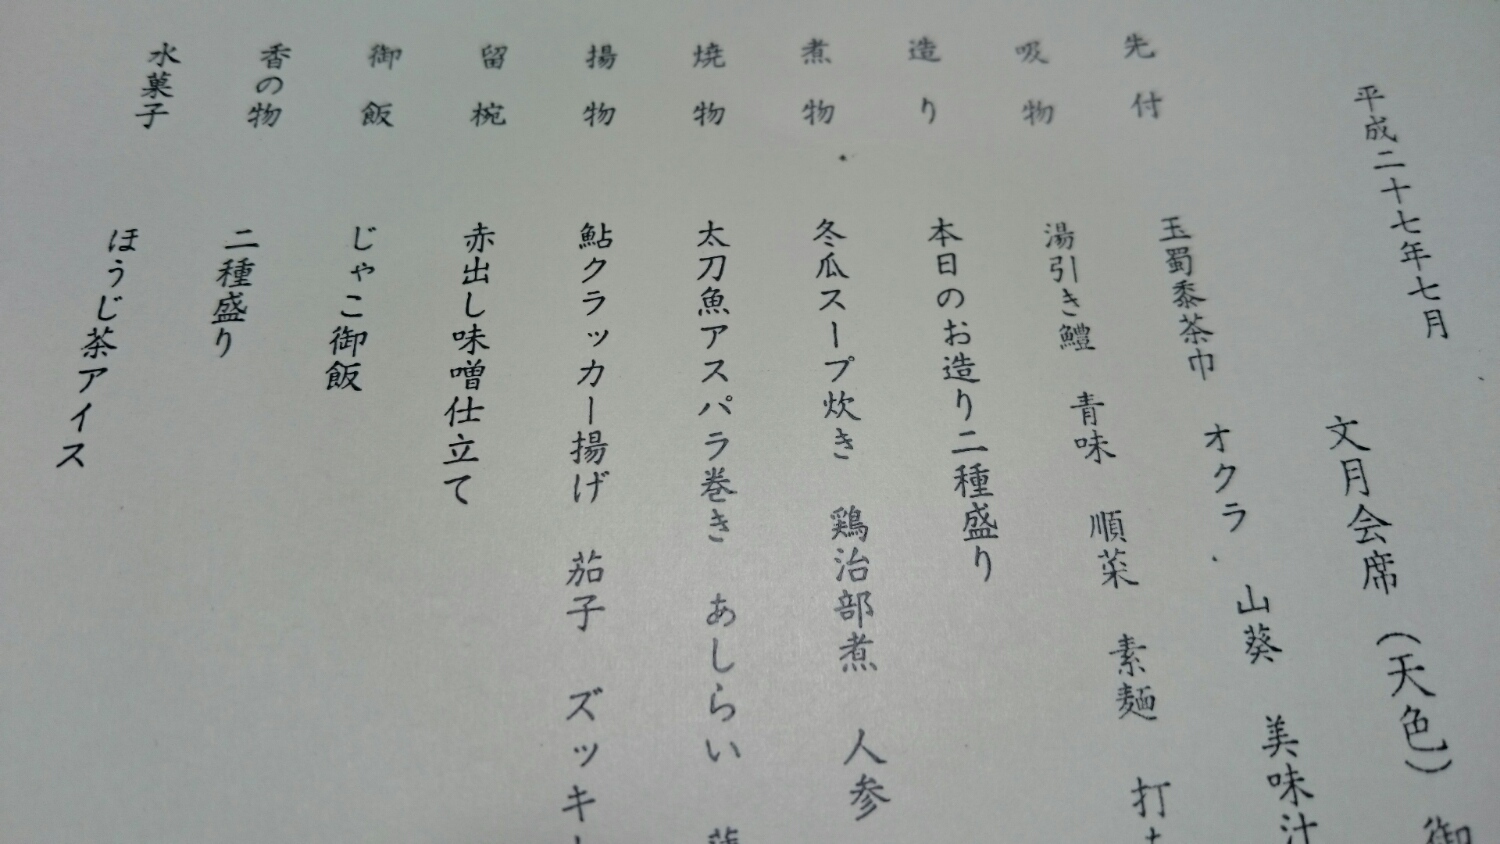 平成二十七年七月
文月会席（天色）御
先付 玉蜀黍茶巾 オクラ 山葵 美味汁
吸物 湯引き鱧 青味 順菜 素麺 打
造り 本日のお造り二種盛り
煮物 冬瓜スープ炊き 鶏治部煮 人参
焼物 太刀魚アスパラ巻き あしらい
揚物 鮎クラッカー揚げ 茄子 ズッキー
留椀 赤出し味噌仕立て
御飯 じゃこ御飯
香の物 二種盛り
水菓子 ほうじ茶アイス